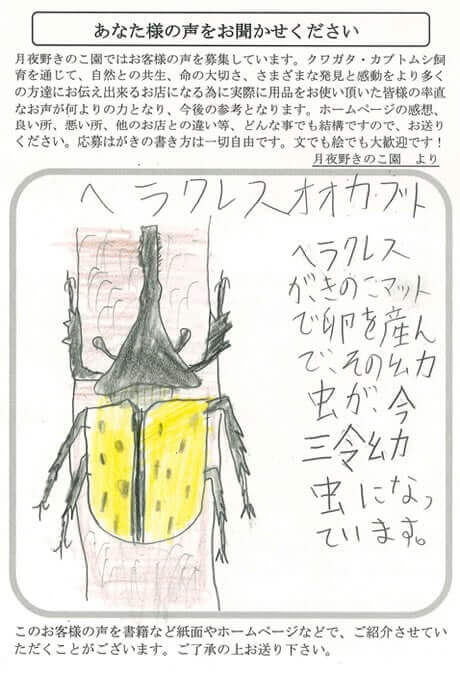 あなた様の声をお聞かせください
月夜野きのこ園ではお客様の声を募集しています。クワガタ・カブトムシ飼
育を通じて、自然との共生、命の大切さ、さまざまな発見と感動をより多く
の方達にお伝え出来るお店になる為に実際に用品をお使い頂いた皆様の率直
なお声が何よりの力となり、今後の参考となります。ホームページの感想、
良い所、悪い所、他のお店との違い等、どんな事でも結構ですので、お送り
ください。応募はがきの書き方は一切自由です。文でも絵でも大歓迎です！
月夜野きのこ園　より
ヘラクレスオオカブト
ヘラクレス
が、きのこマット
で卵を産ん
で、その幼
虫が、今
三令幼
虫になっ
ています。
このお客様の声を書籍など紙面やホームページなどで、ご紹介させてい
ただくことがございます。ご了承の上お送り下さい。